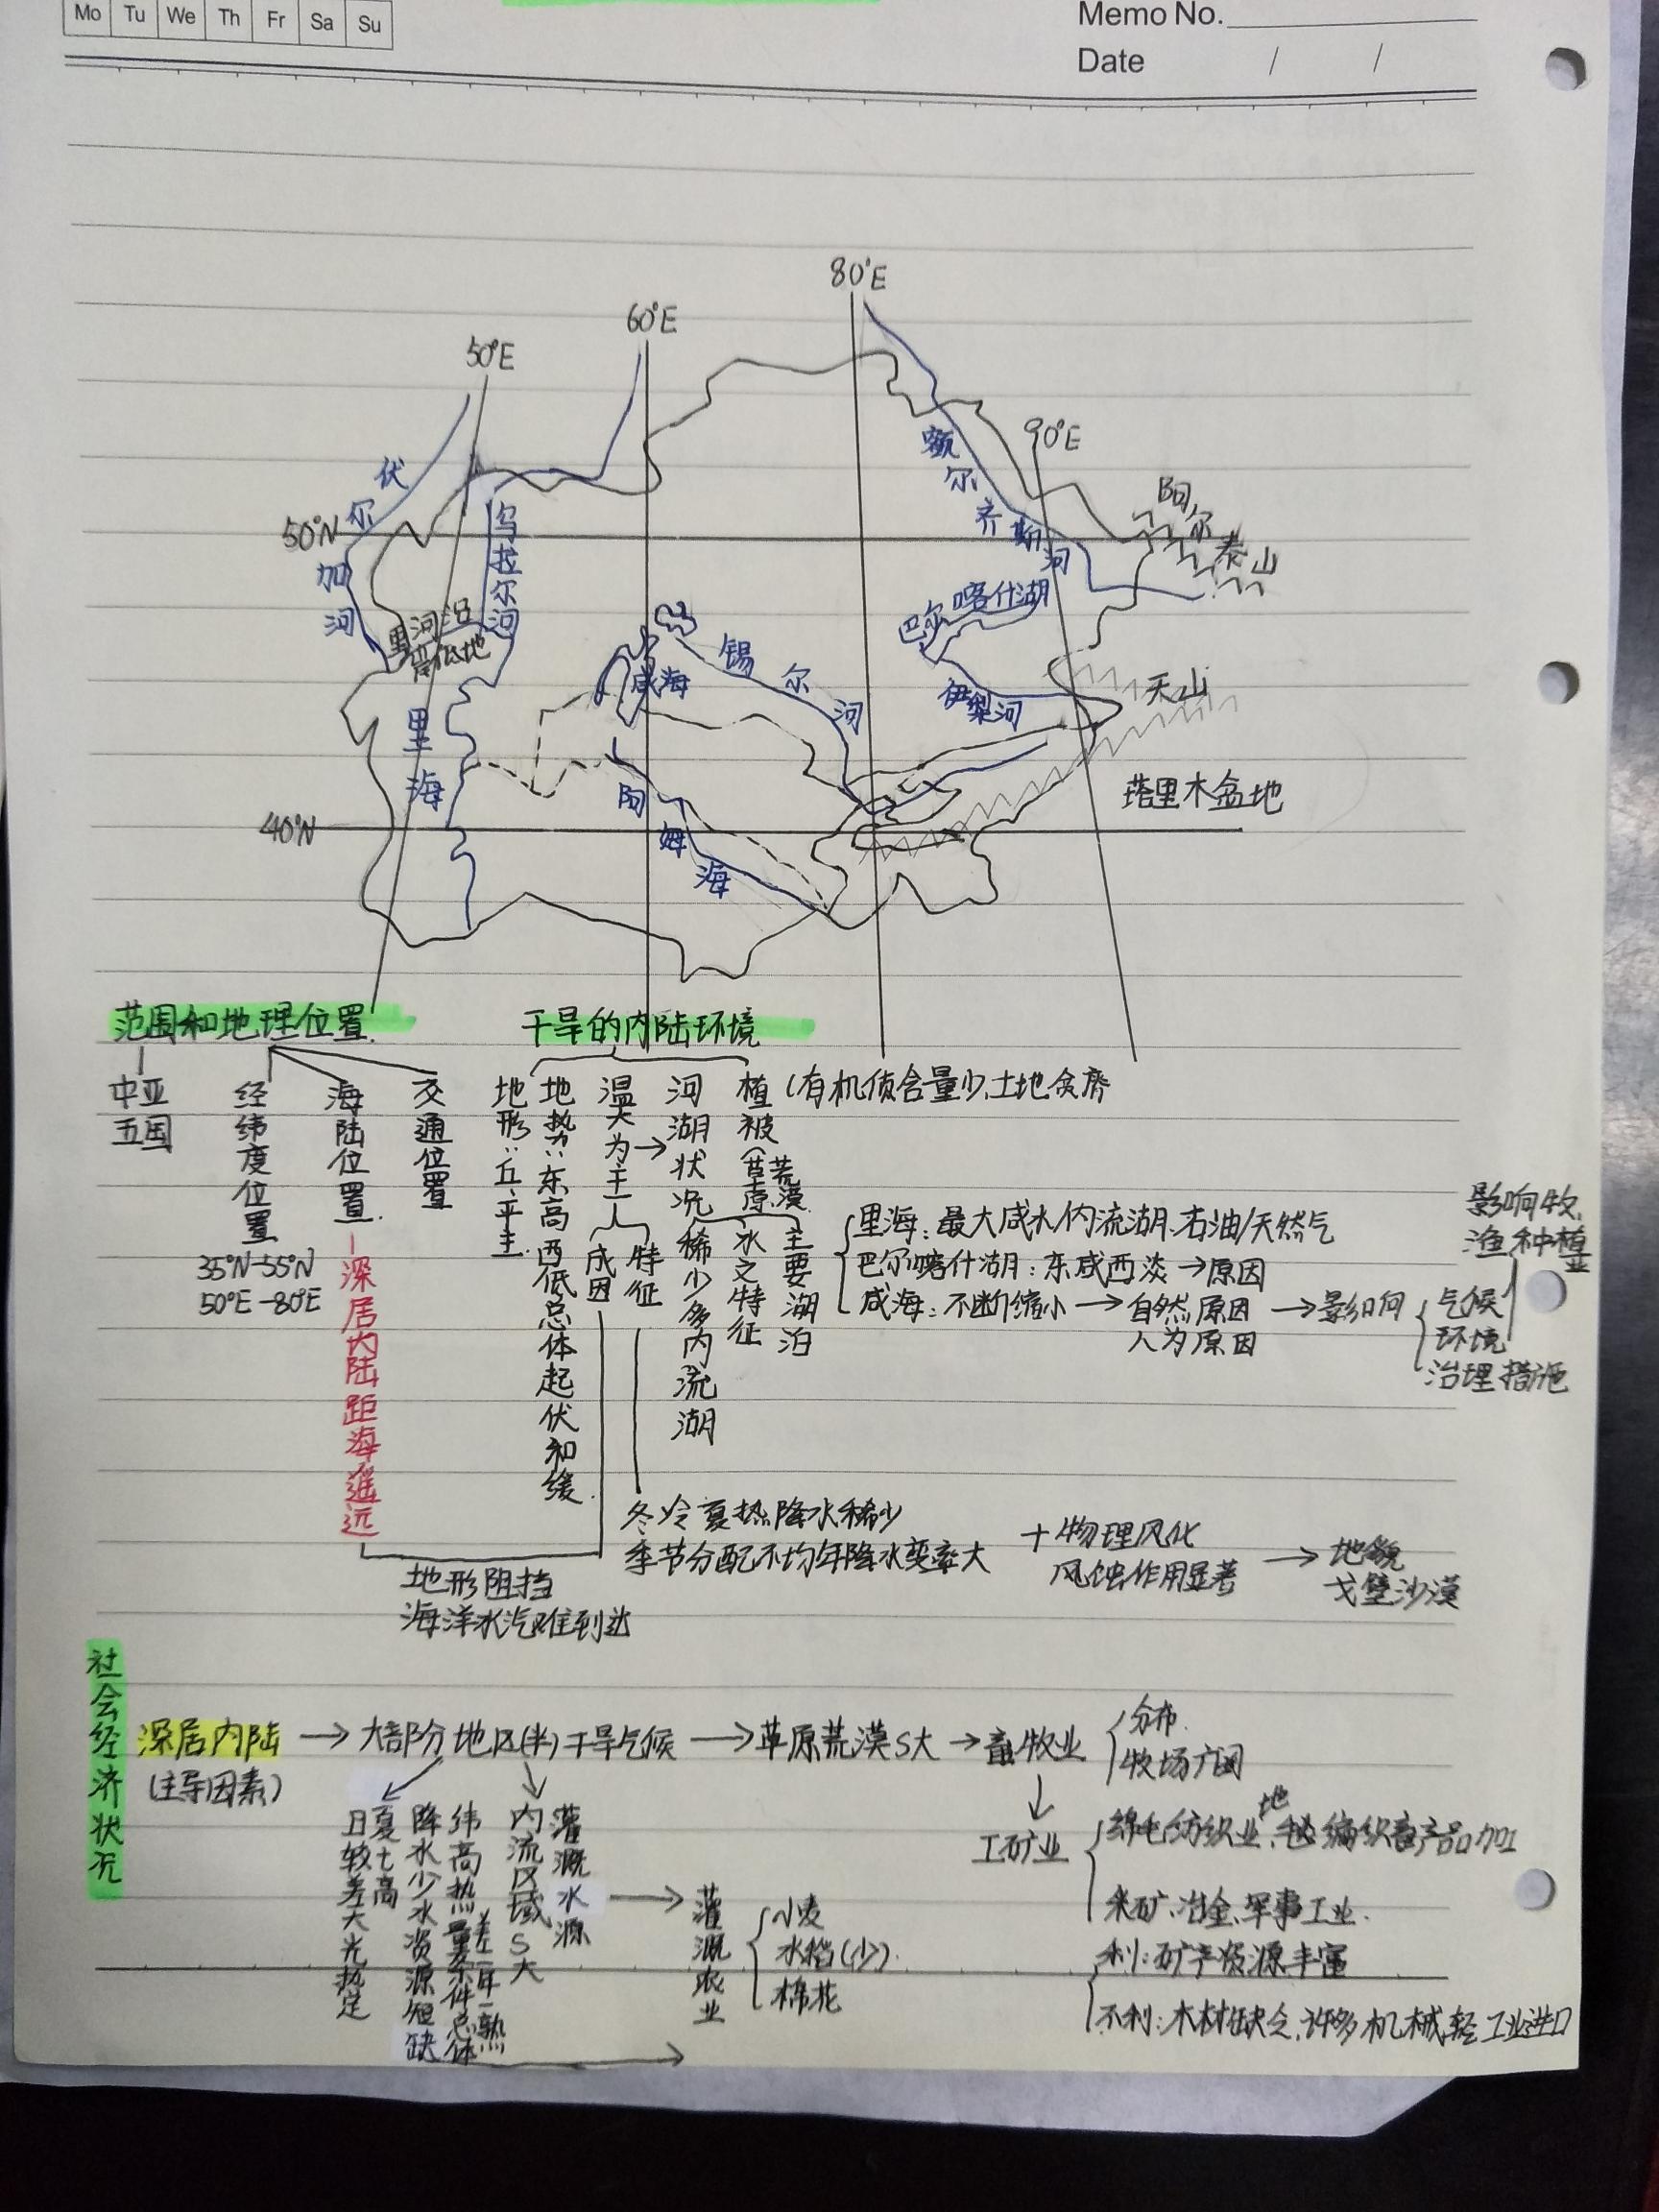 Mo Tu We Th Fr Sa Su
Memo No.
Date / /
80°E
60°E
50°E
90°E
伏尔加河
50°N
乌拉尔河
额尔齐斯河
阿尔泰山
里海沿岸低地
巴尔喀什湖
咸海
锡尔河
伊犁河
天山
里海
阿姆海
塔里木盆地
40°N
范围和地理位置
干旱的内陆环境
中亚五国
经纬度位置
35°N-55°N
50°E-80°E
海陆位置
深居内陆距海遥远
交通位置
地形:丘、平主
地势:东高西低总体起伏和缓
温大为主→
成因
特征
河湖状况
稀少多内流湖
水文特征
主要湖泊
植被(草原荒漠
(有机质含量少,土地贫瘠
里海:最大咸水/内流湖.石油/天然气
巴尔喀什湖:东咸西淡→原因
咸海:不断缩小→自然原因
人为原因
→影响
气候
环境
治理措施
影响牧,
渔种植业
冬冷夏热降水稀少
季节分配不均年降水变率大
+物理风化
风蚀作用显著
→地貌
戈壁沙漠
地形阻挡
海洋水汽难到达
社会经济状况
深居内陆→大部分地区(半)干旱气候→草原荒漠S大→畜牧业
(主导因素)
分布.
牧场广阔
夏七高
日较差大光热足
降水少水资源短缺
纬高热量条件总体差一年一熟
内流区域S大
灌溉水源
→灌溉农业
小麦
水稻(少)
棉花
工矿业
棉毛纺织业、地毯编织畜产品加工
采矿、冶金、军事工业.
利:矿产资源丰富
不利:木材缺乏,许多机械,轻工业进口